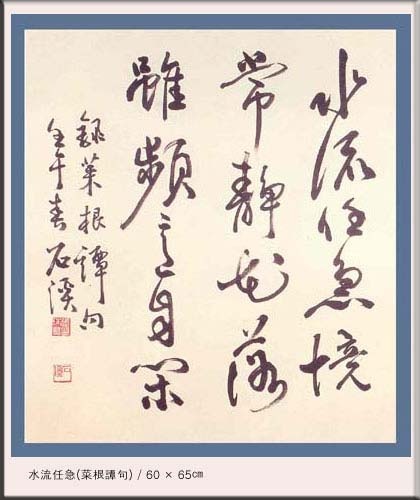 水流任急境
常靜花落
雖頻意自閑
錄菜根譚句
壬午春 石溪
水流任急(菜根譚句) / 60 × 65㎝